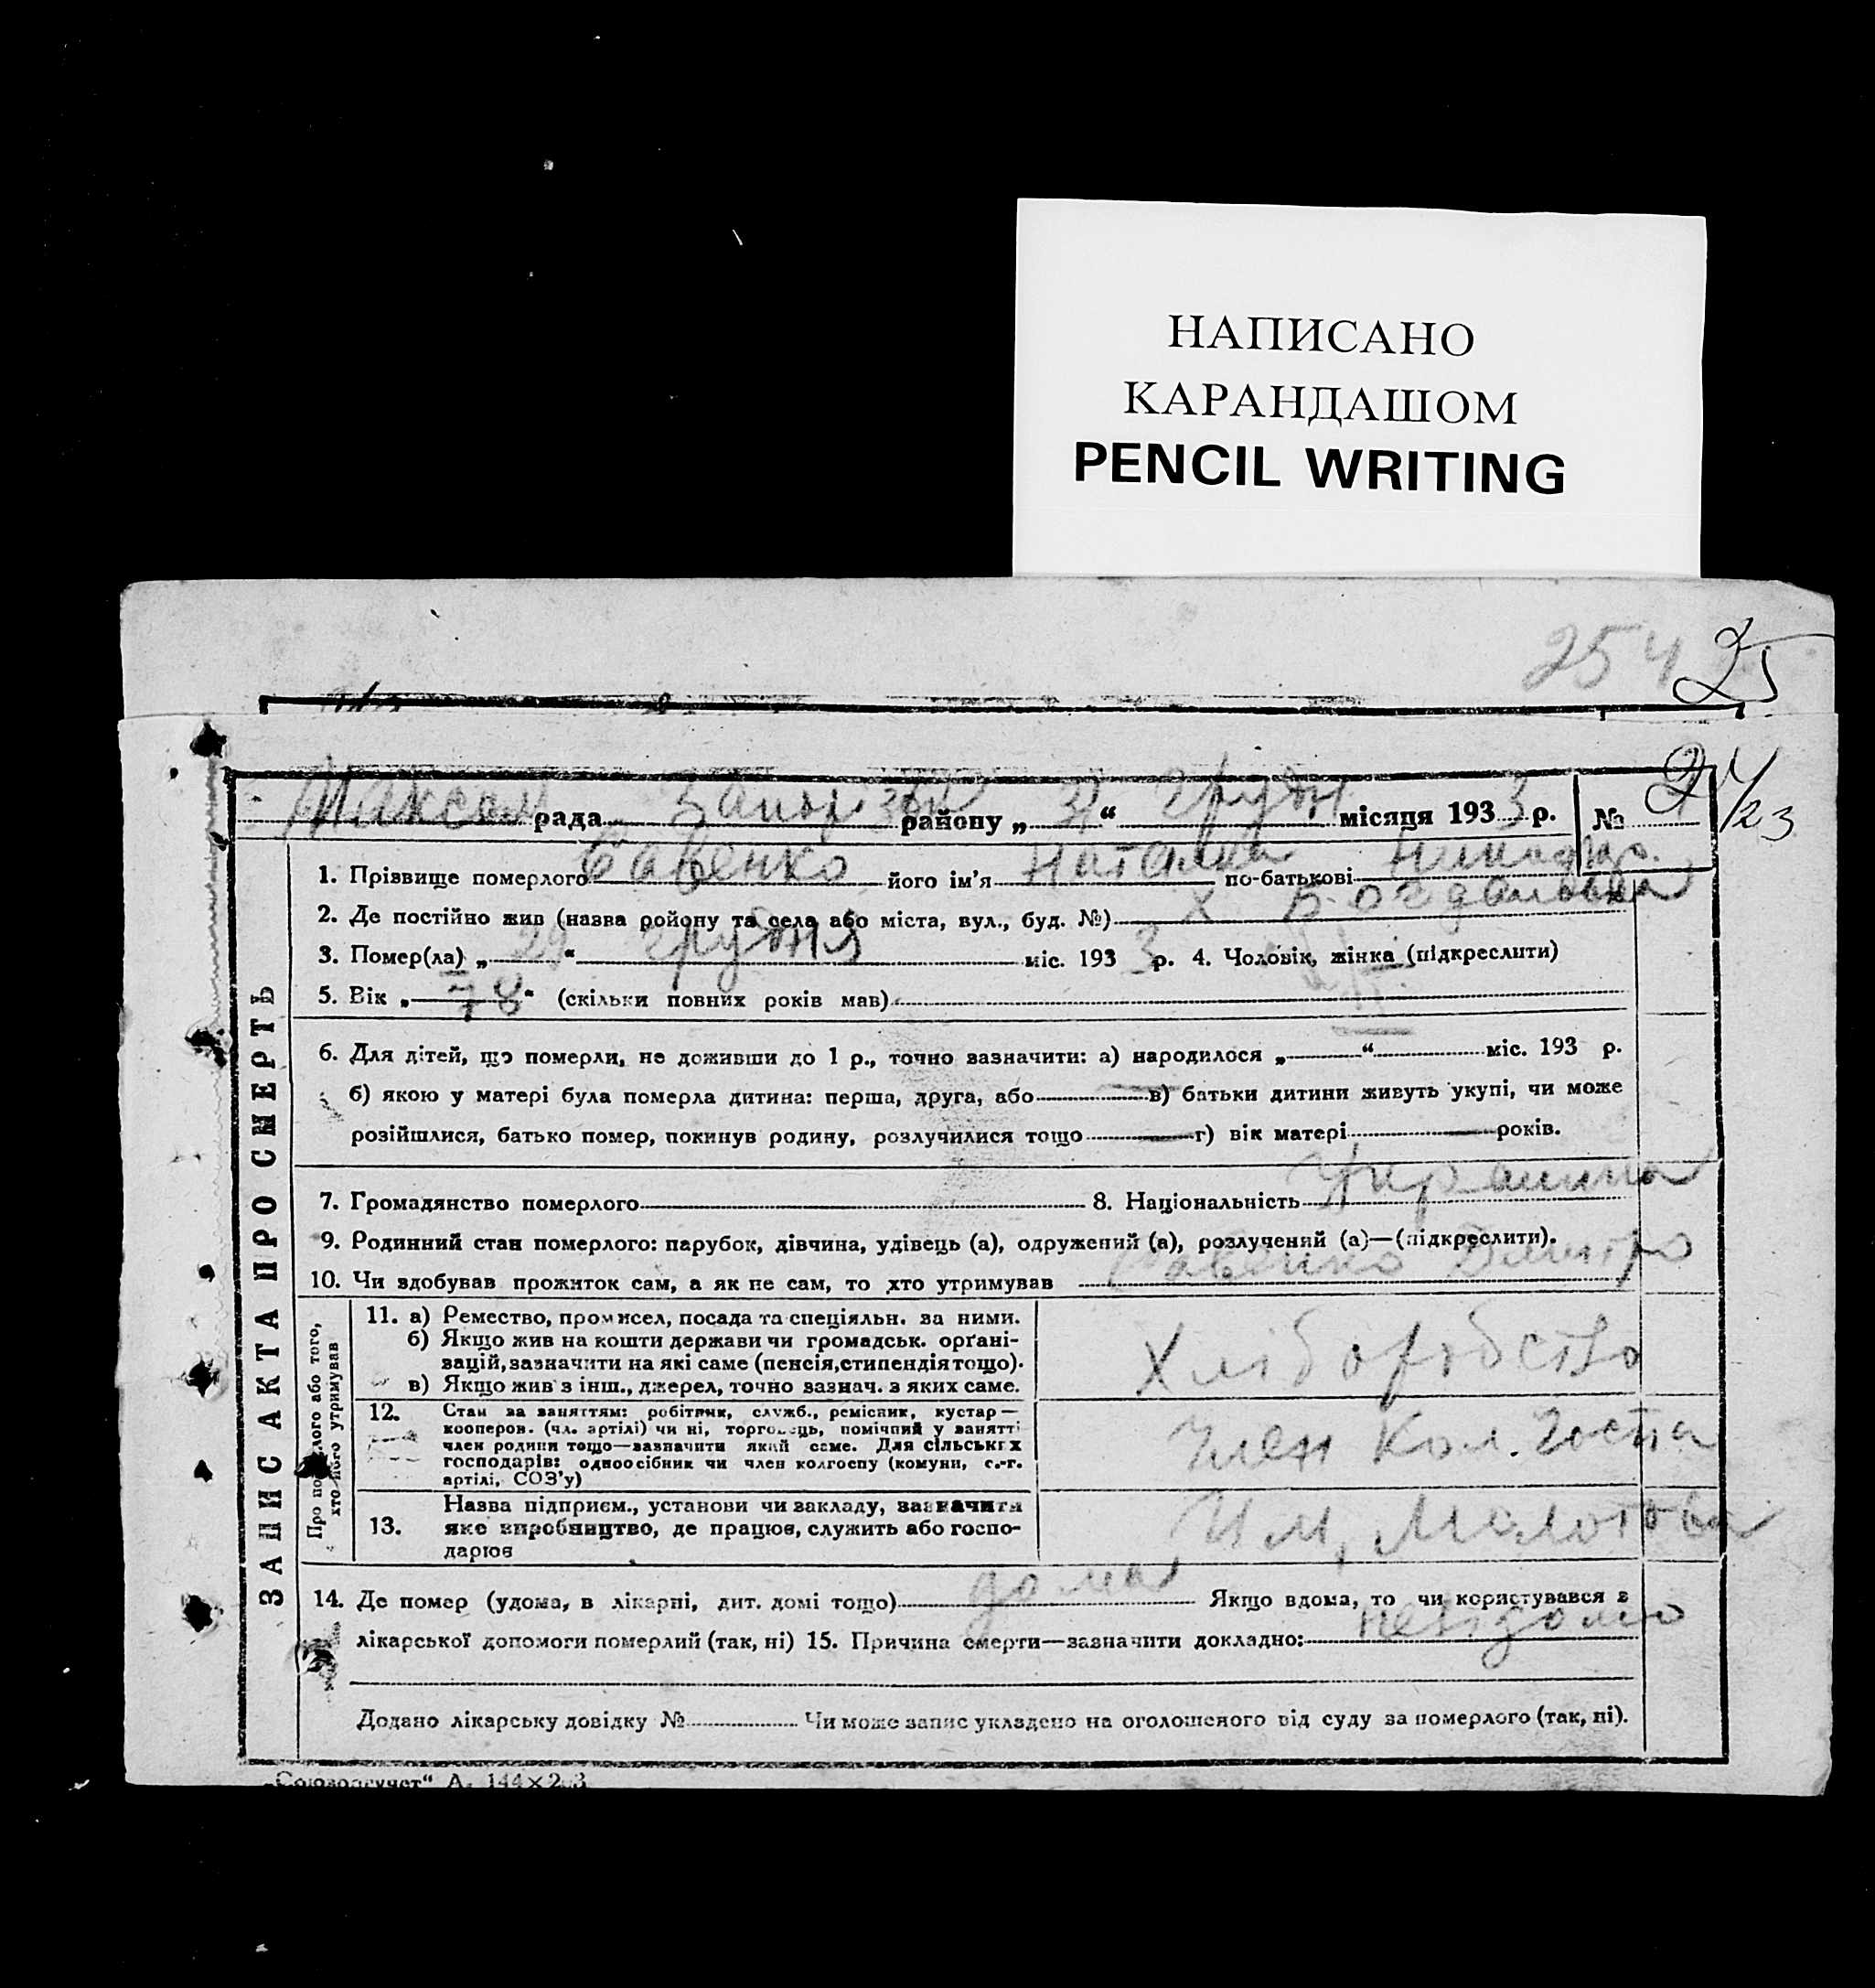 НАПИСАНО
КАРАНДАШОМ
PENCIL WRITING
254 25
рада Запоріжж району „ 31 “ Грудн місяця 193 3 р. № 24/23
ЗАПИС АКТА ПРО СМЕРТЬ
1. Прізвище померлого Савенко його ім'я Наталка по-батькові
2. Де постійно жив (назва ройону та села або міста, вул., буд. №) х Богдановка
3. Помер(ла) „ 29 “ грудня міс. 193 3 р. 4. Чоловік, жінка (підкреслити)
5. Вік „ 78 “ (скільки повних років мав)
6. Для дітей, що померли, не доживши до 1 р., точно зазначити: а) народилося „ “ міс. 193 р.
б) якою у матері була померла дитина: перша, друга, або в) батьки дитини живуть укупі, чи може
розійшлися, батько помер, покинув родину, розлучилися тощо г) вік матері років.
7. Громадянство померлого 8. Національність Украинка
9. Родинний стан померлого: парубок, дівчина, удівець (а), одружений (а), розлучений (а)—(підкреслити).
10. Чи здобував прожиток сам, а як не сам, то хто утримував Савенко Дмитро
Про померлого або того,
хто його утримував
11. а) Ремество, промисел, посада та спеціяльн. за ними.
б) Якщо жив на кошти держави чи громадськ. орґані-
зацій, зазначити на які саме (пенсія, стипендія тощо).
в) Якщо жив з інш., джерел, точно зазнач. з яких саме.
Хліборобство
12. Стан за заняттям: робітник, служб., ремісник, кустар—
кооперов. (чл. артілі) чи ні, торговець, помічний у занятті
член родини тощо—зазначити який саме. Для сільських
господарів: одноосібник чи член колгоспу (комуни, с.-г.
артілі, СОЗ'у)
Член Кол.госпа
13. Назва підприєм., установи чи закладу, зазначити
яке виробництво, де працює, служить або госпо-
дарює
Им, Молотова
14. Де помер (удома, в лікарні, дит. домі тощо) дома Якщо вдома, то чи користувався з
лікарської допомоги померлий (так, ні) 15. Причина смерти—зазначити докладно: невідомо
Додано лікарську довідку № Чи може запис укладено на оголошеного від суду за померлого (так, ні).
„Союзоргучет“ А.